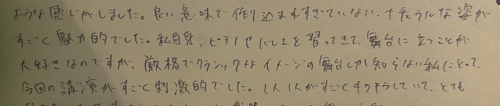 ような感じがしました。良い意味で作り込まれすぎていない、ナチュラルな姿が
すごく魅力的でした。私自身、ピアノやバレエを習ってきて、舞台に立つことが
大好きなのですが、厳格でクラシックなイメージの舞台しか知らない私にとって、
今回の講演がすごく刺激的でした。1人1人がすごくキラキラしていて、とても